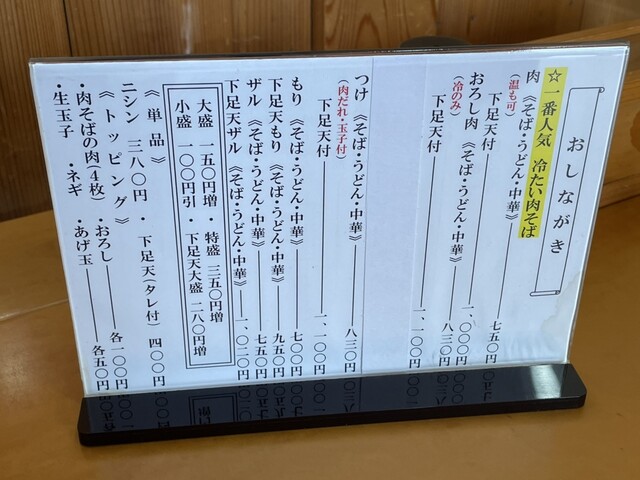 おしながき
☆一番人気 冷たい肉そば
肉《そば・うどん・中華》――七五〇円
(温も可)
下足天付――一、〇〇〇円
おろし肉《そば・うどん・中華》――八三〇円
(冷のみ)
下足天付――一、一〇〇円
つけ《そば・うどん・中華》――八三〇円
(肉だれ・玉子付)
下足天付――一、一〇〇円
もり《そば・うどん・中華》――七〇〇円
下足天もり《そば・うどん・中華》――九五〇円
ザル《そば・うどん・中華》――七五〇円
下足天ザル《そば・うどん・中華》――一、〇二〇円
大盛 一五〇円増・特盛 三五〇円増
小盛 一〇〇円引・下足天大盛 二八〇円増
《単品》
ニシン 三八〇円・下足天(タレ付)四〇〇円
《トッピング》
・肉そばの肉(4枚)・おろし――各一〇〇円
・生玉子 ・ネギ ・あげ玉――各五〇円